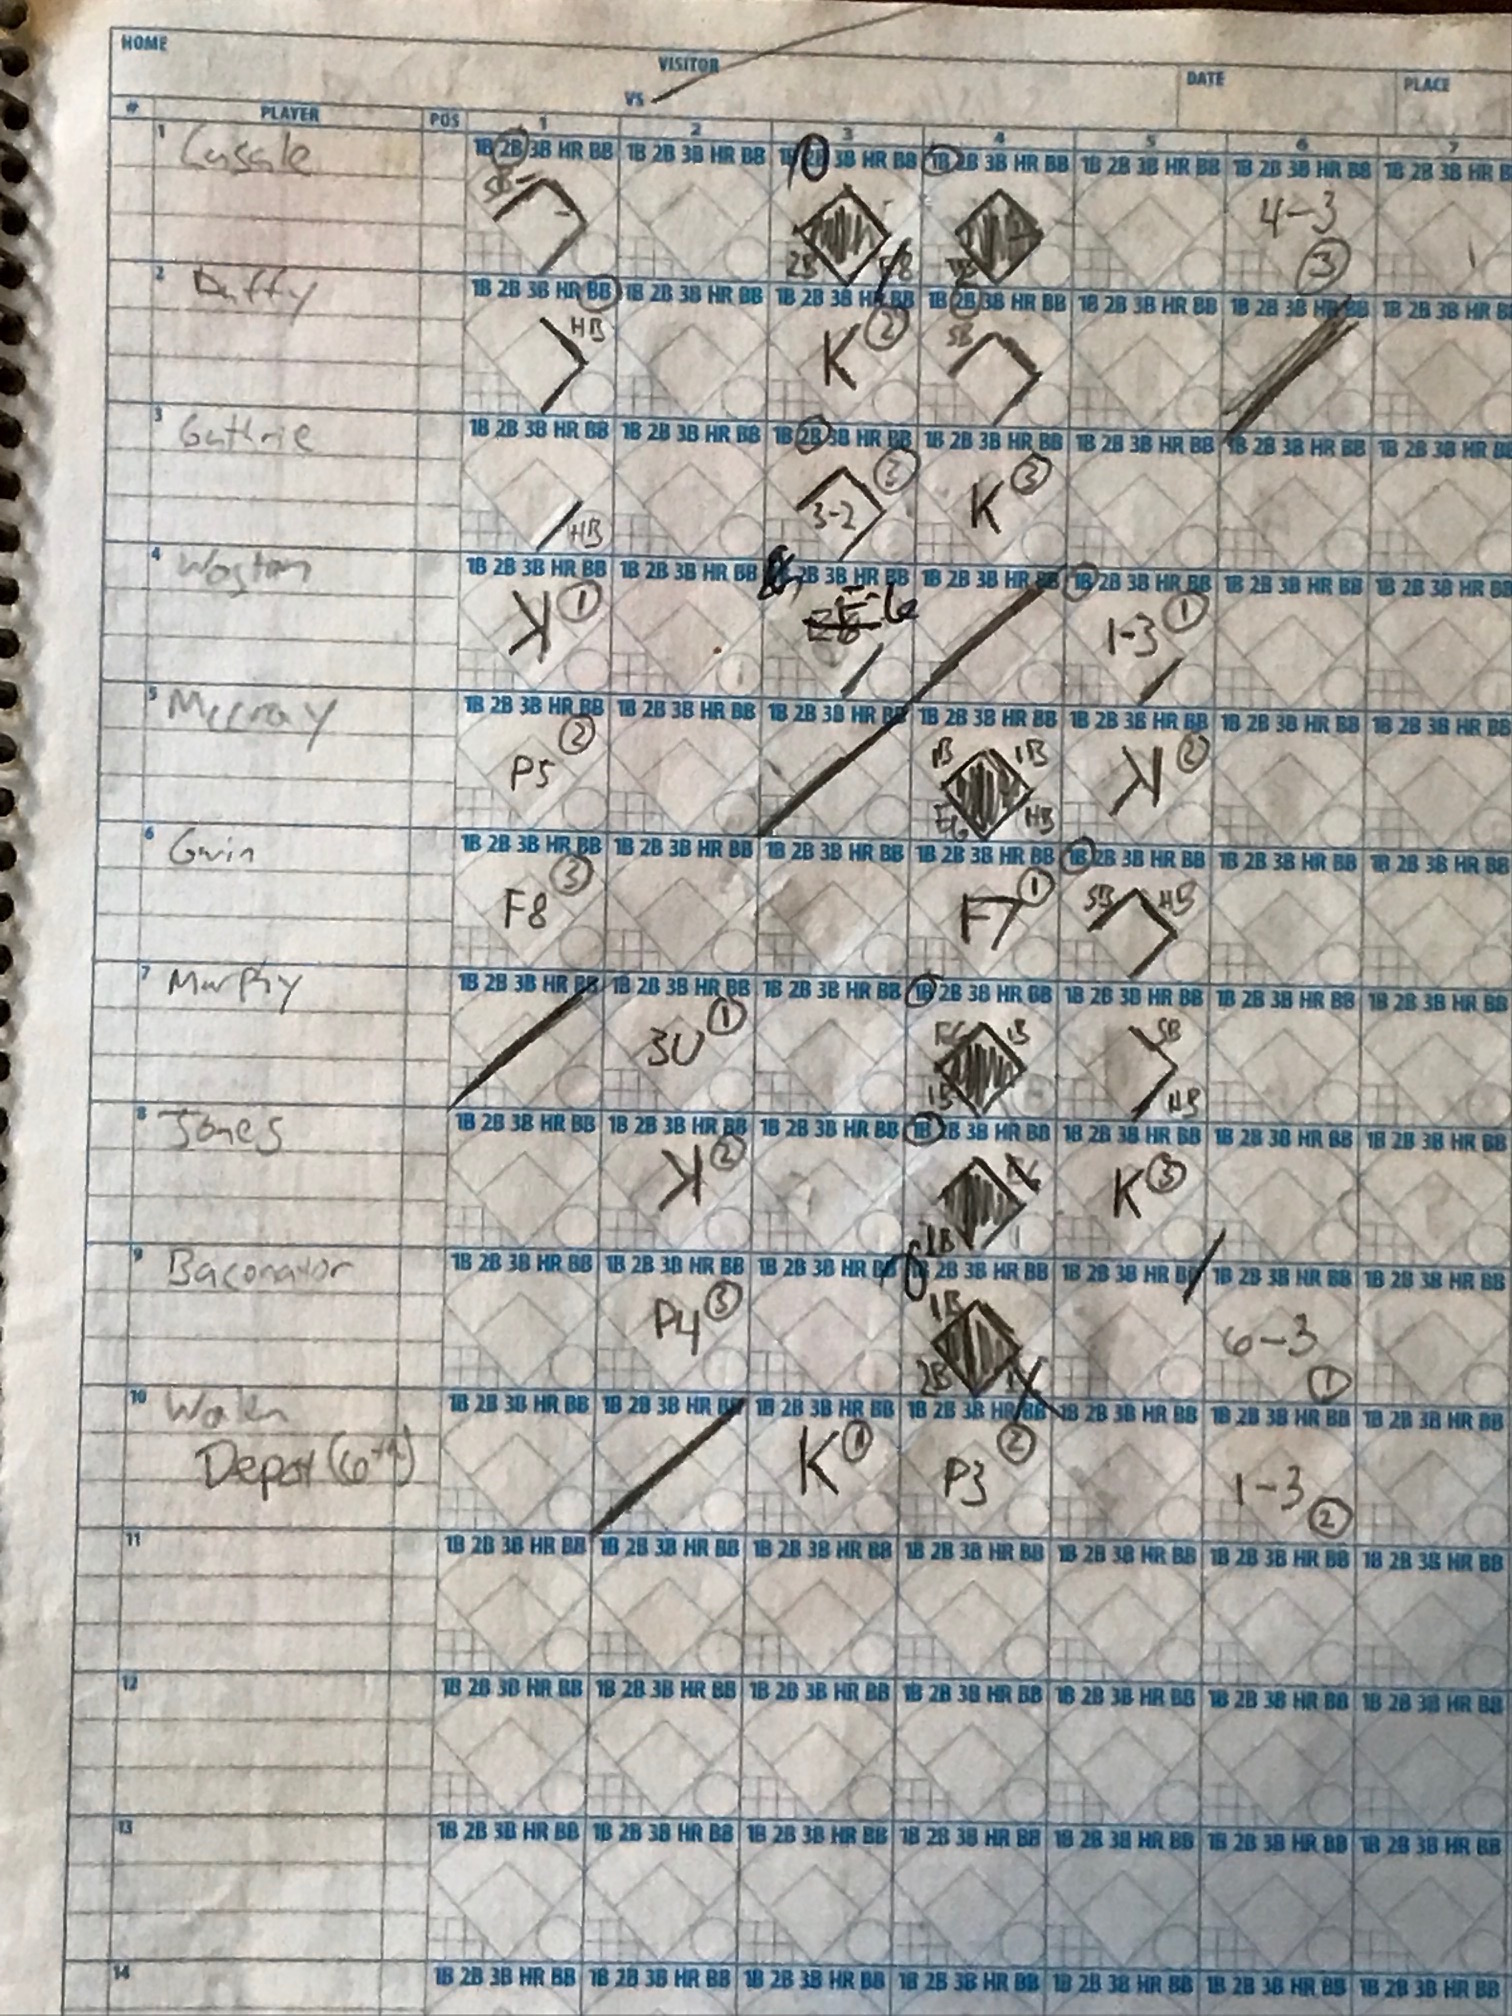 HOME VISITOR DATE PLACE
VS
# PLAYER POS 1 2 3 4 5 6 7
1 1B 2B 3B HR BB 1B 2B 3B HR BB 3B HR BB 1B 2B 3B HR BB 1B 2B 3B HR BB 1B 2B 3B HR BB 1B 2B 3B HR B
Cassale SB 2B 4-3 3
2 Duffy 1B 2B 3B HR BB 1B 2B 3B HR BB 1B 2B 3B HR BB 1B 2B 3B HR BB 1B 2B 3B HR BB 1B 2B 3B HR BB 1B 2B 3B HR BB
HB K 2 SB
3 Guthrie 1B 2B 3B HR BB 1B 2B 3B HR BB 1B 2B 3B HR BB 1B 2B 3B HR BB 1B 2B 3B HR BB 1B 2B 3B HR BB 1B 2B 3B HR BB
HB 3-2 K 3
4 1B 2B 3B HR BB 1B 2B 3B HR BB 2B 3B HR BB 1B 2B 3B HR BB 1B 2B 3B HR BB 1B 2B 3B HR BB 1B 2B 3B HR BB
K 1 E-6 1-3 1
5 Mccray 1B 2B 3B HR BB 1B 2B 3B HR BB 1B 2B 3B HR BB 1B 2B 3B HR BB 1B 2B 3B HR BB 1B 2B 3B HR BB 1B 2B 3B HR BB
P5 2 1B 1B E6 HB K 2
6 Gwin 1B 2B 3B HR BB 1B 2B 3B HR BB 1B 2B 3B HR BB 1B 2B 3B HR BB 1B 2B 3B HR BB 1B 2B 3B HR BB 1B 2B 3B HR BB
F8 3 F7 1 SB HB
7 Murphy 1B 2B 3B HR BB 1B 2B 3B HR BB 1B 2B 3B HR BB 1B 2B 3B HR BB 1B 2B 3B HR BB 1B 2B 3B HR BB 1B 2B 3B HR BB
3U 1 1B 1B SB HB
8 Jones 1B 2B 3B HR BB 1B 2B 3B HR BB 1B 2B 3B HR BB 1B 2B 3B HR BB 1B 2B 3B HR BB 1B 2B 3B HR BB 1B 2B 3B HR BB
K 2 1B K 3
9 Baconator 1B 2B 3B HR BB 1B 2B 3B HR BB 1B 2B 3B HR BB 2B 3B HR BB 1B 2B 3B HR BB 1B 2B 3B HR BB 1B 2B 3B HR BB
P4 3 1B 2B 6-3 1
10 1B 2B 3B HR BB 1B 2B 3B HR BB 1B 2B 3B HR BB 1B 2B 3B HR BB 1B 2B 3B HR BB 1B 2B 3B HR BB 1B 2B 3B HR BB
(6th) K 1 P3 2 1-3 2
11 1B 2B 3B HR BB 1B 2B 3B HR BB 1B 2B 3B HR BB 1B 2B 3B HR BB 1B 2B 3B HR BB 1B 2B 3B HR BB 1B 2B 3B HR BB
12 1B 2B 3B HR BB 1B 2B 3B HR BB 1B 2B 3B HR BB 1B 2B 3B HR BB 1B 2B 3B HR BB 1B 2B 3B HR BB 1B 2B 3B HR BB
13 1B 2B 3B HR BB 1B 2B 3B HR BB 1B 2B 3B HR BB 1B 2B 3B HR BB 1B 2B 3B HR BB 1B 2B 3B HR BB 1B 2B 3B HR BB
14 1B 2B 3B HR BB 1B 2B 3B HR BB 1B 2B 3B HR BB 1B 2B 3B HR BB 1B 2B 3B HR BB 1B 2B 3B HR BB 1B 2B 3B HR BB